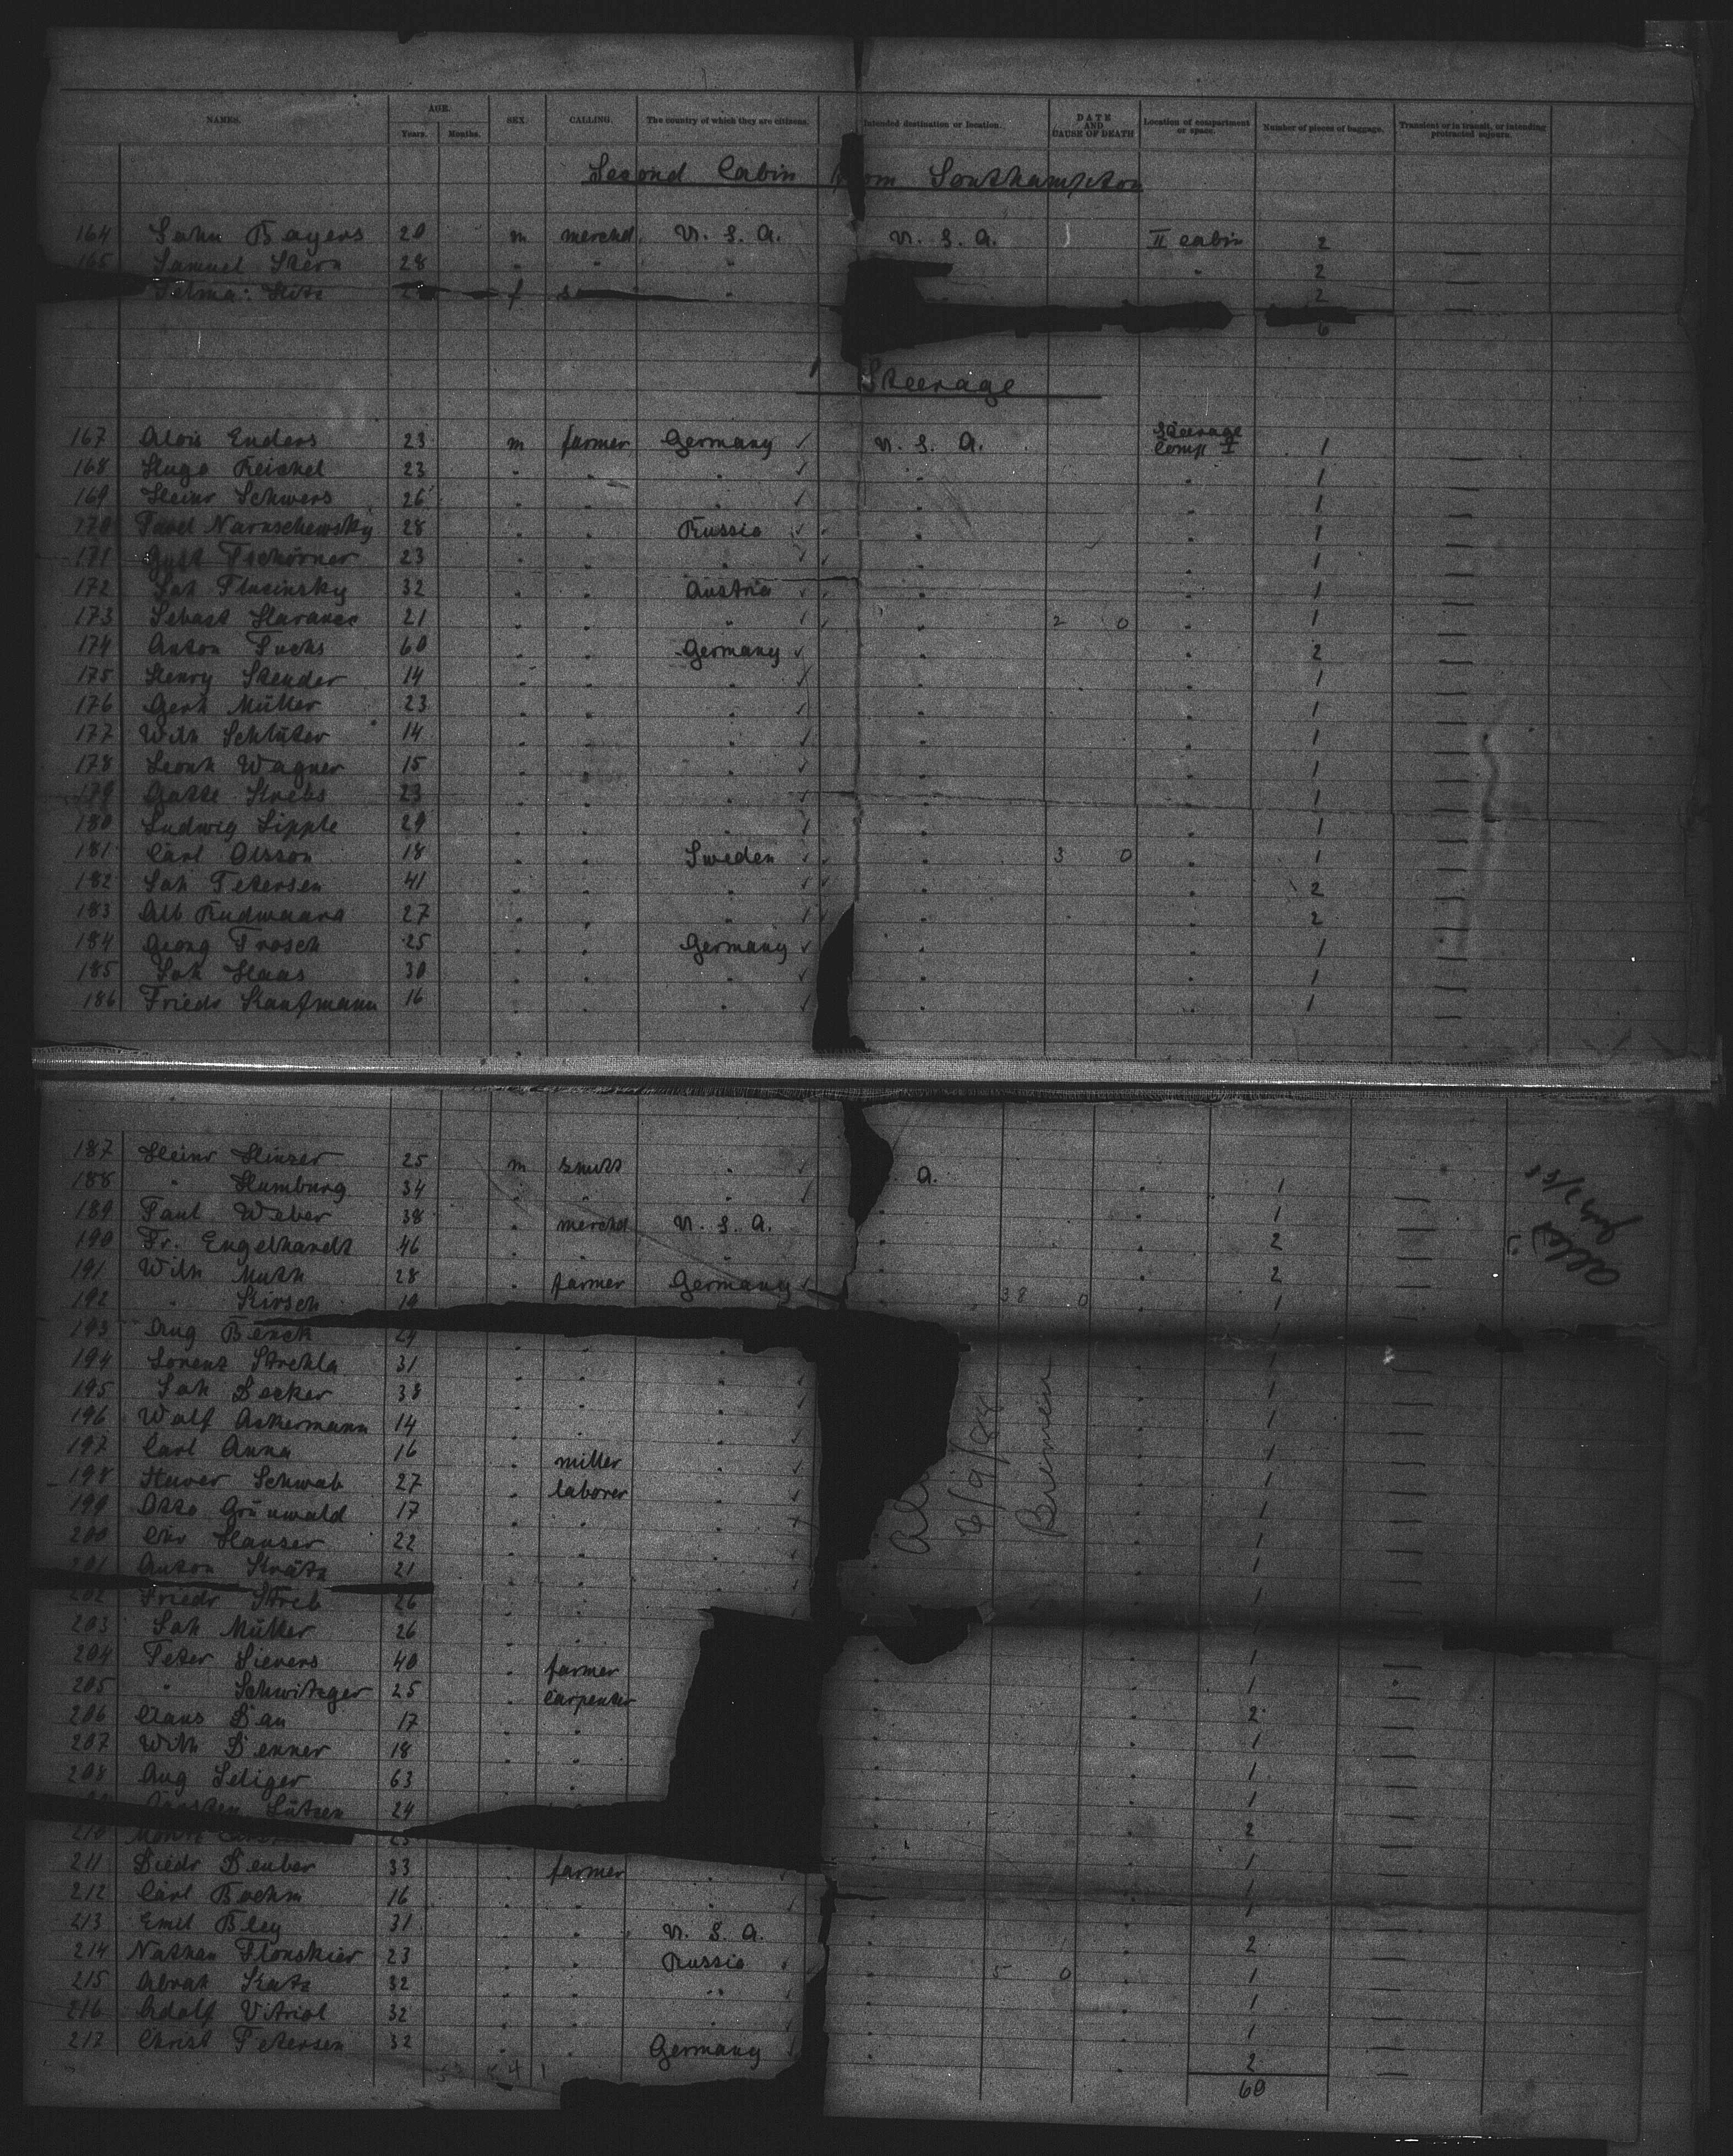 NAMES. AGE. Years. Months. SEX. CALLING. The country of which they are citizens. Intended destination or location. DATE AND CAUSE OF DEATH Location of compartment or space. Number of pieces of baggage. Transient or in transit, or intending protracted sojourn.
Second Cabin from Southampton
164 John Bayers 20 m merchd. U. S. A. U. S. A. II cabin 2 —
165 Samuel Stern 28 " " " " 2 —
f " 2 —
6
Steerage
167 Alois Enders 23 m farmer Germany ✓ U. S. A. Steerage Comp I 1 —
168 Hugo Reichel 23 " " " ✓ " " 1 —
169 Heinr Schwers 26 " " " ✓ " " 1 —
170 Pavel 28 " " Russia ✓ " " 1 —
171 Gust Tschörner 23 " " " ✓ " " 1 —
172 Joh 32 " " Austria ✓ " " 1 —
173 Sebast 21 " " " ✓ " 2 0 " 1 —
174 Anton Fuchs 60 " " Germany ✓ " " 2 —
175 Henry Stender 14 " " " ✓ " " 1 —
176 Gerh Müller 23 " " " ✓ " " 1 —
177 Wilh Schlüter 14 " " " ✓ " " 1 —
178 Leonh Wagner 15 " " " ✓ " " 1 —
179 Krebs 23 " " " ✓ " " 1 —
180 Ludwig Lipple 29 " " " ✓ " " 1 —
181 Carl Olsson 18 " " Sweden ✓ " 3 0 " 1 —
182 Joh Petersen 41 " " " ✓ " " 2 —
183 Alb 27 " " " ✓ " " 2 —
184 Georg Frosch 25 " " Germany ✓ " " 1 —
185 Joh Haas 30 " " " ✓ " " 1 —
186 Friedr Kaufmann 16 " " " ✓ " " 1 —
187 Heinr 25 m " ✓ A. 1 —
188 " Humburg 34 " " " ✓ " " 1 —
189 Paul Weber 38 " merchd U. S. A. " " 2 —
190 Fr. Engelhardt 46 " " " " " 2 —
191 Wilh Muth 28 " farmer Germany ✓ " 38 0 " 1 —
192 " Kirsch 19 1
193 Aug 29 " " " 1 —
194 Lorenz Strehla 31 " " " ✓ 1 —
195 Joh Becker 38 " " " ✓ 1 —
196 Wolf Ackermann 14 " " " ✓ 1 —
197 Carl Anna 16 " miller " ✓ 1 —
198 Schwab 27 " laborer " ✓ 1 —
199 Otto Grünwald 17 " " " 1 —
200 Chr Hauser 22 " " " ✓ 1 —
201 Anton Krätz 21 " " " " 1 —
202 Friedr Streb 26 " " " 1
203 Joh Müller 26 " " " 1 —
204 Peter Sievers 40 " farmer " 1 —
205 " Schwitzger 25 " carpenter " 2 —
206 Claus Dau 17 " " " " 1 —
207 Wilh Denner 18 " " " " 1 —
208 Aug Seliger 63 " " " " 1 —
Lützen 24 " " 2 —
210 25 " " 1 —
211 Diedr Deuber 33 " farmer " 1 —
212 Carl Boehm 16 " " " ✓ " 1 —
213 Emil Bley 31 " " U. S. A. " " 2 —
214 Nathan 23 " " Russia " 5 0 " 1 —
215 Abrah Katz 32 " " " " " 1 —
216 Adolf Vitriol 32 " " " " " 1 —
217 Christ Petersen 32 " " Germany " " 2 —
60
Bremen